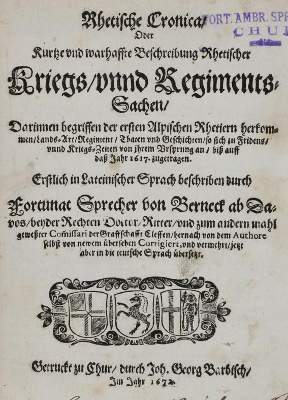 Rhetische Cronica/
Oder
Kurtze vnd warhaffte Beschreibung Rhetischer
Kriegs/vnnd Regiments-
Sachen/
Darinnen begriffen der ersten Alpischen Rhetiern herkom-
men/Lands-Art/Regiment/Thaten vnd Geschichten/so sich zu Fridens/
vnnd Kriegs-Zeiten von jhrem Vrsprung an/biß auff
daß Jahr 1617. zugetragen.
Erstlich in Lateinischer Sprach beschriben durch
Fortunat Sprecher von Berneck ab Da-
vos/beyder Rechten Doctor/Ritter/vnd zum andern mahl
geweßter Comissari der Graffschafft Cleffen/hernach von dem Authore
selbst von newem übersehen Corrigiert/vnd vermehrt/jetz
aber in die teutsche Sprach übersetzt.
Getruckt zu Chur/durch Joh. Georg Barbisch/
Im Jahr 1672.
PORT. AMBR. SPR
CHU